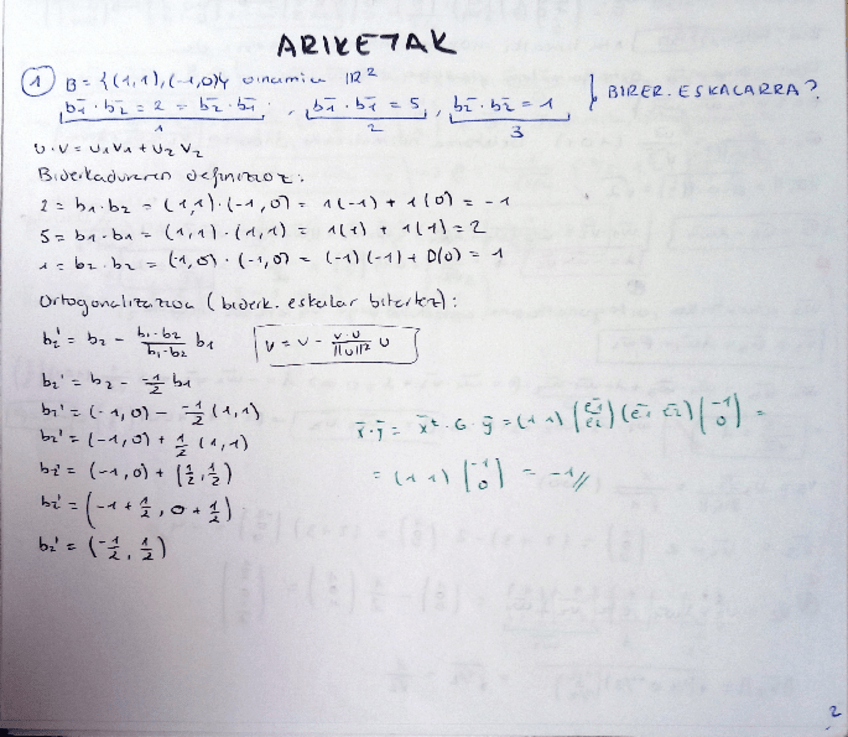 ARIKETAK
1 B = {(1,1), (-1,0)} oinarria ℝ²
b̄1 · b̄2 = 2 = b̄2 · b̄1 , b̄1 · b̄1 = 5 , b̄2 · b̄2 = 1 } BIDER. ESKALARRA?
1 2 3
u · v = u1v1 + u2v2
Biderkaduraren definizioz:
2 = b1 · b2 = (1,1) · (-1,0) = 1(-1) + 1(0) = -1
5 = b1 · b1 = (1,1) · (1,1) = 1(1) + 1(1) = 2
1 = b2 · b2 = (-1,0) · (-1,0) = (-1)(-1) + 0(0) = 1
Ortogonalizazioa (biderk. eskalar bitartez):
b2' = b2 - (b1·b2)/(b1·b2) b1 v = v - (v·u)/||u||² u
b2' = b2 - -1/2 b1
b2' = (-1,0) - -1/2 (1,1)
b2' = (-1,0) + 1/2 (1,1)
b2' = (-1,0) + (1/2, 1/2)
b2' = (-1 + 1/2, 0 + 1/2)
b2' = (-1/2, 1/2)
x̄ · ȳ = x̄ᵗ · G · ȳ = (1 1) (ē1 ē2) (ē1 ē2) (-1 0) =
= (1 1) (-1 0) = -1//
2